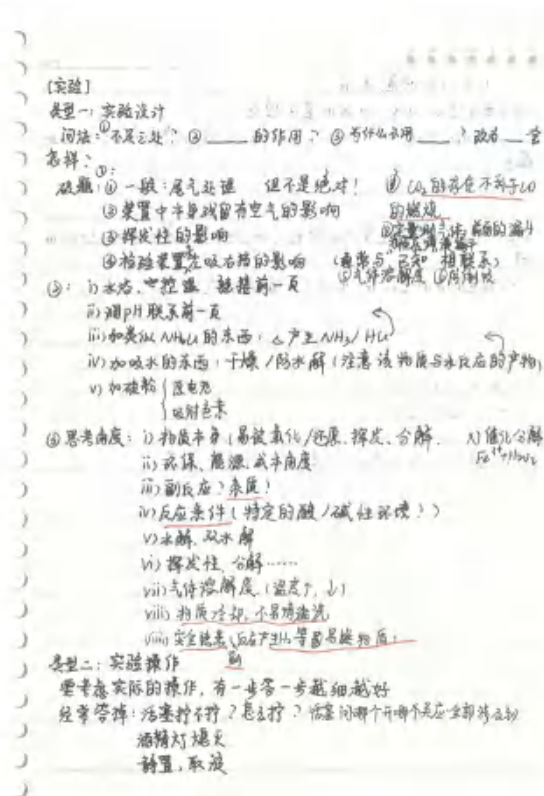 [实验]
类型一：实验设计
问法：① 不足之处？ ② ____ 的作用？ ③ 为什么不用 ____ ？改为 __ 会
怎样？
破题：① ① 一般：尾气处理 但不是绝对！ CO₂的存在不利于CO
② 装置中本身残留有空气的影响 的燃烧
③ 挥发性的影响 定量测气体
④ 检验装置左吸右挡的影响 (通常与"已知"相联系) ⑤ 气体溶解度
②： i) 水浴、 链接前一页
ii) 调pH 联系前一页
iii) 加类似NH₄Cl的东西：△产生NH₃/HCl
iv) 加吸水的东西：干燥/防水解 (注意该物质与水反应的产物)
v) 加碳粉 { 原电池
吸附色素
③ 思考角度：i) 物质本身 (易被氧化/还原、挥发、分解、 x) 催化分解
ii) 环保、能源、成本角度 Fe³⁺+H₂O₂
iii) 副反应？杂质？
iv) 反应条件 (特定的酸/碱性环境？)
v) 水解、双水解
vi) 挥发性、分解……
vii) 气体溶解度 (温度↑, ↓)
viii) 物质冷却，不易
viiii) 安全隐患 (反应产生H₂等易燃物质)
类型二：实验操作
需考虑实际的操作，有一步答一步越细越好
经常答掉：活塞拧不拧？怎么拧？ 活塞问哪个开哪个关应全部涉及到
酒精灯熄灭
静置，取液